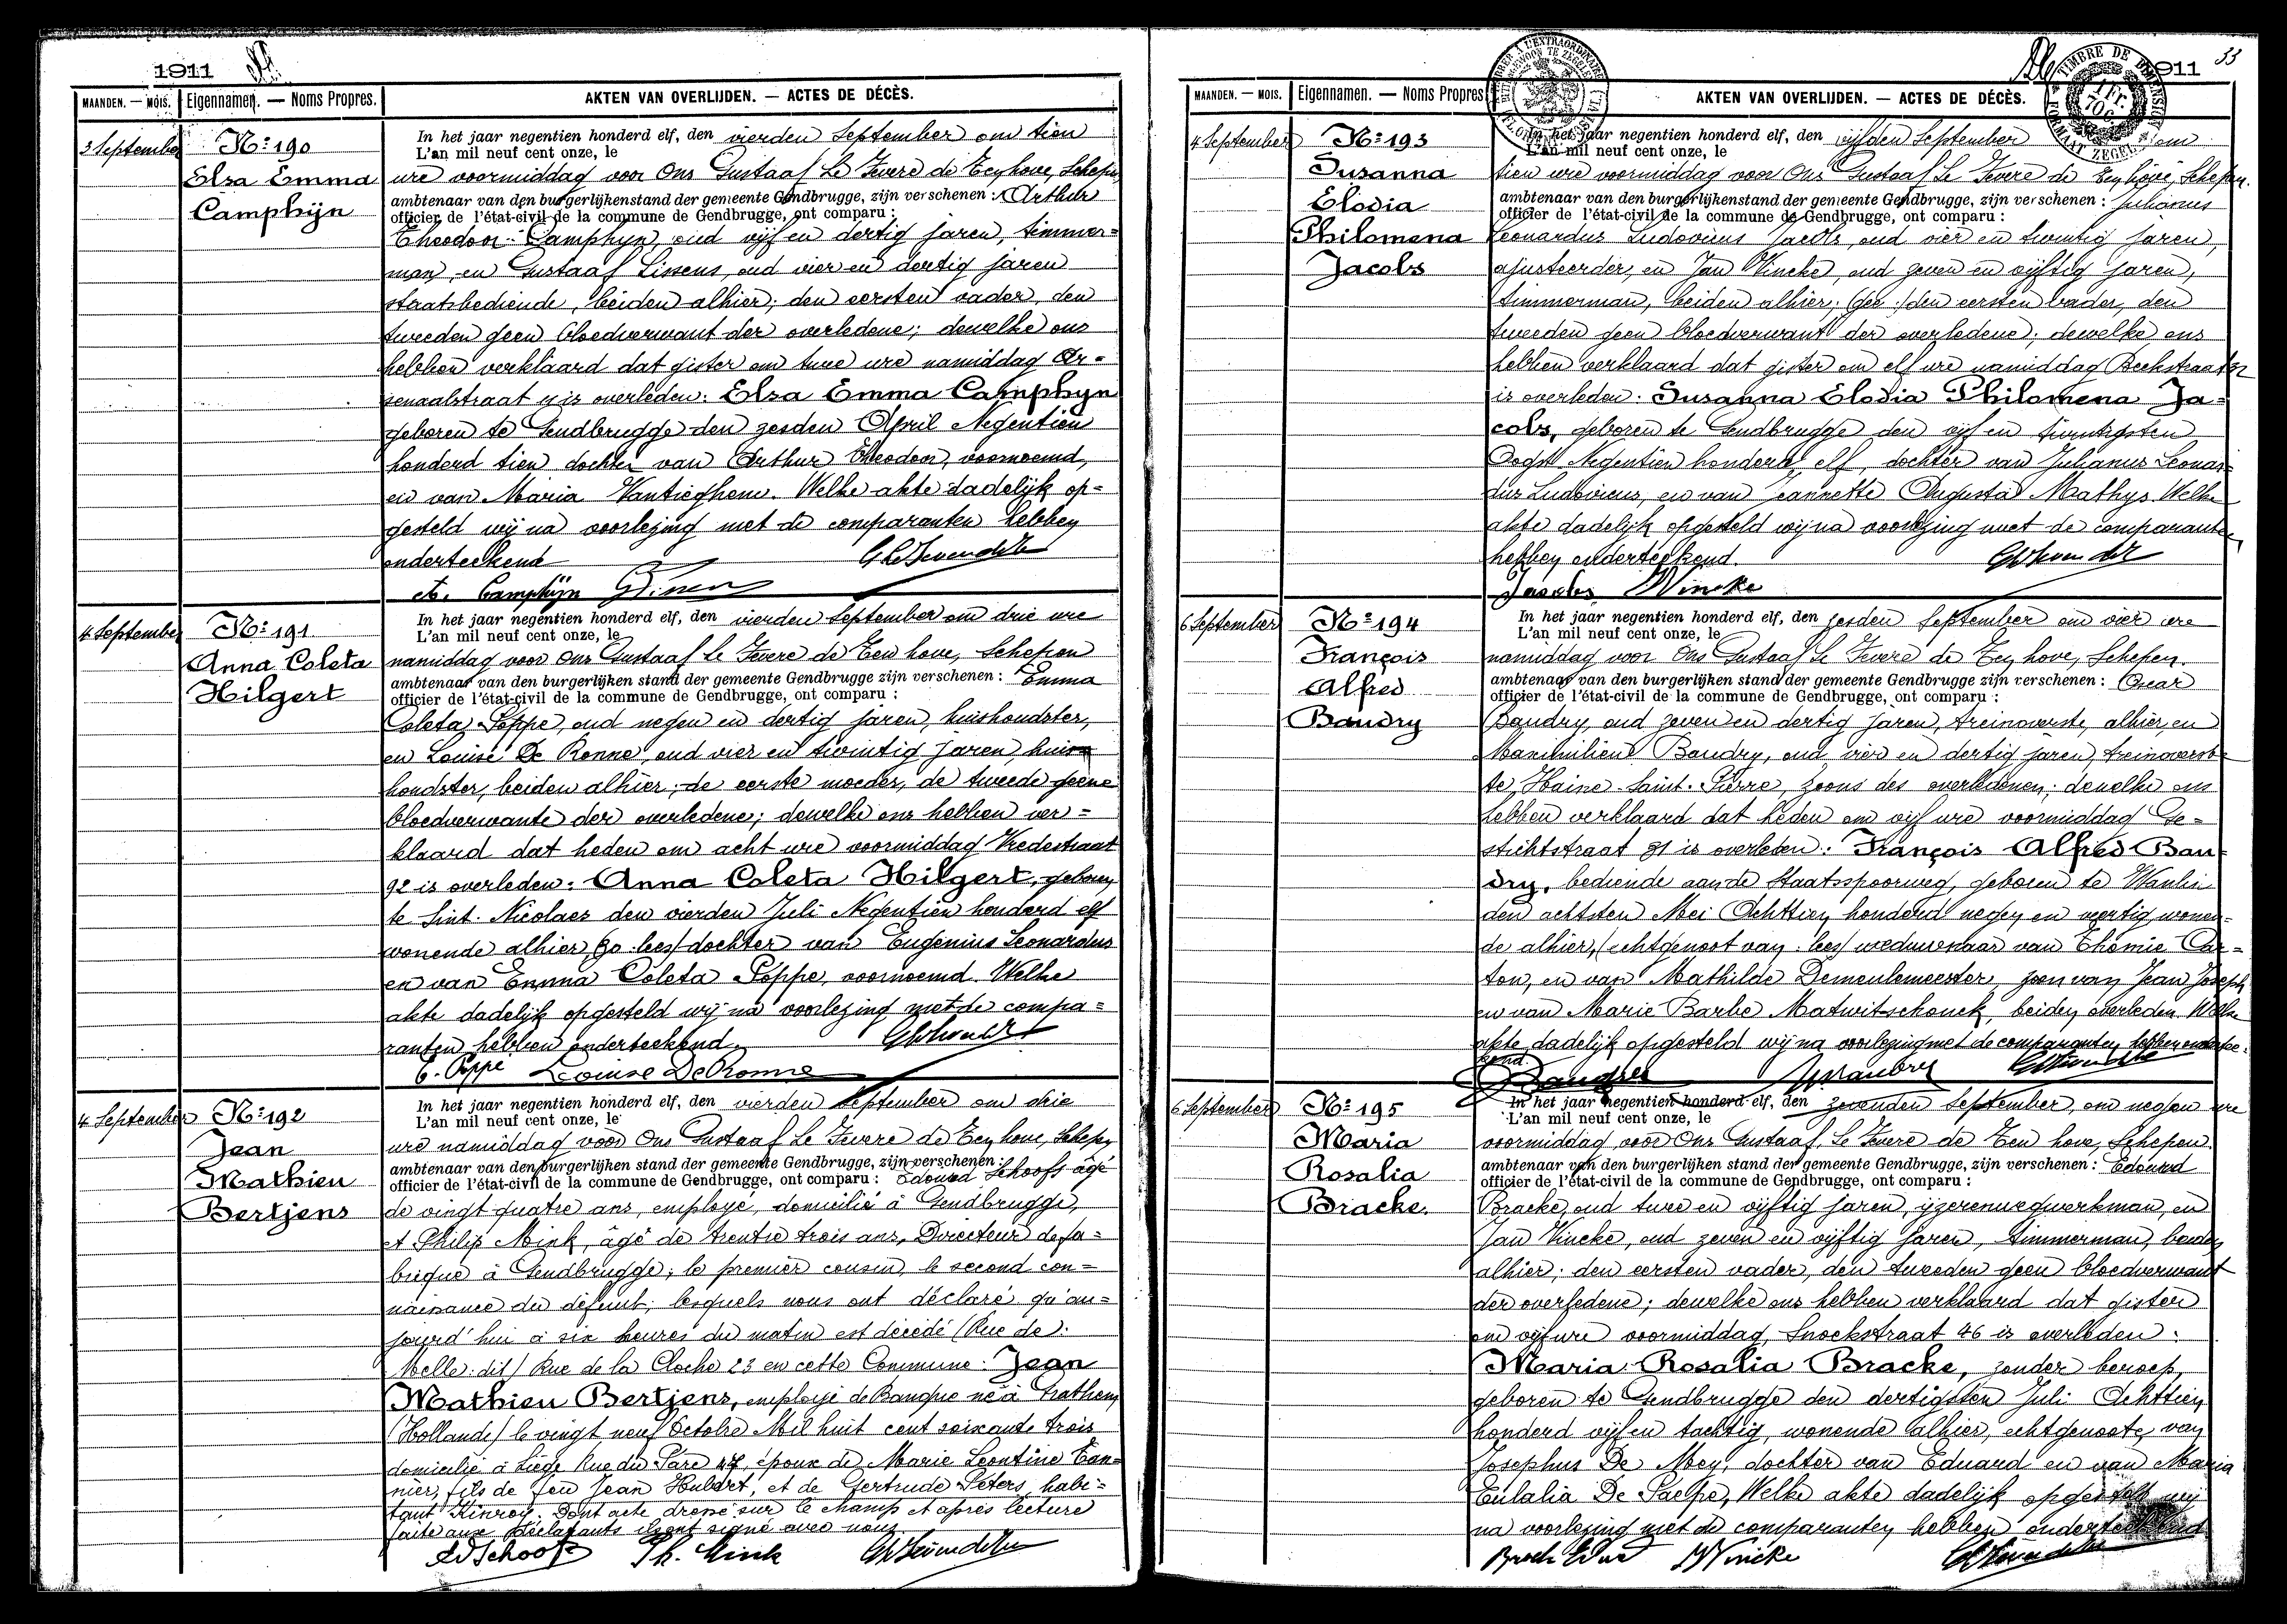 1911
MAANDEN. — MOIS. Eigennamen. — Noms Propres. AKTEN VAN OVERLIJDEN. — ACTES DE DÉCÈS.
3 September
No: 190
Elsa Emma
Camphijn
In het jaar negentien honderd elf, den vierden September om tien
L'an mil neuf cent onze, le
ure voormiddag voor Ons Gustaaf Le Fevere de Ten hove, Schepen
ambtenaar van den burgerlijkenstand der gemeente Gendbrugge, zijn verschenen : Arthur
officier de l'état-civil de la commune de Gendbrugge, ont comparu :
Theodoor Camphyn, oud vijf en dertig jaren, timmer=
man, en Gustaaf Lissens, oud vier en dertig jaren
staatsbediende, beiden alhier; den eersten vader, den
tweeden geen bloedverwant der overledene; dewelke ons
hebben verklaard dat gister om twee ure namiddag Ar=
senaalstraat is overleden: Elsa Emma Camphyn
geboren te Gendbrugge den zesden April Negentien
honderd tien dochter van Arthur Theodoor, voornoemd,
en van Maria Vantieghem. Welke akte dadelijk op=
gesteld wij na voorlezing met de comparanten hebben
onderteekend
A. Camphijn
4 September
No: 191
Anna Coleta
Hilgert
In het jaar negentien honderd elf, den vierden September om drie ure
L'an mil neuf cent onze, le
namiddag voor Ons Gustaaf Le Fevere de Ten hove, Schepen
ambtenaar van den burgerlijken stand der gemeente Gendbrugge zijn verschenen : Emma
officier de l'état-civil de la commune de Gendbrugge, ont comparu :
Coleta Poppe, oud negen en dertig jaren, huishoudster,
en Louise De Ronne, oud vier en twintig jaren, huis
houdster, beiden alhier; de eerste moeder, de tweede geene
bloedverwante der overledene; dewelke ons hebben ver=
klaard dat heden om acht ure voormiddag Vredestraat
92 is overleden: Anna Coleta Hilgert, geboren
te Sint. Nicolaes den vierden Juli Negentien honderd elf
wonende alhier, dochter van Eugenius Leonardus
en van Emma Coleta Poppe, voornoemd. Welke
akte dadelijk opgesteld wij na voorlezing met de compa=
ranten hebben onderteekend.
C. Poppe Louise De Ronne
4 September
No: 192
Jean
Mathieu
Bertjens
In het jaar negentien honderd elf, den vierden September om drie
L'an mil neuf cent onze, le
ure namiddag voor Ons Gustaaf Le Fevere de Ten hove, Schepen
ambtenaar van den burgerlijken stand der gemeente Gendbrugge, zijn verschenen :
officier de l'état-civil de la commune de Gendbrugge, ont comparu : Edouard Schoofs âgé
de vingt quatre ans, employé, domicilié à Gendbrugge,
et Philip Mink, âgé de trentre trois ans, Directeur de fa=
brique à Gendbrugge; le premier cousin, le second con=
naissance du défunt; lesquels nous ont déclaré qu'au=
jourd'hui à six heures du matin est décédé (Rue de
Melle: dit) Rue de la Cloche 23 en cette Commune: Jean
Mathieu Bertjens, employé de Banque né à Grathem
(Hollande) le vingt neuf Octobre Mil huit cent soixante trois
domicilié à Liège Rue du Parc 47, époux de Marie Leontine Tan=
nier, fils de feu Jean Hubert, et de Gertrude Peters, habi=
tant Kinroy. Dont acte dressé sur le champ et après lecture
faite aux Déclarants ils ont signé avec nous
Ed Schoofs Ph. Mink
1911
33
MAANDEN. — MOIS. Eigennamen. — Noms Propres AKTEN VAN OVERLIJDEN. — ACTES DE DÉCÈS.
4 September
No: 193
Susanna
Elodia
Philomena
Jacobs
In het jaar negentien honderd elf, den vijfden September om
L'an mil neuf cent onze, le
tien ure voormiddag voor Ons Gustaaf Le Fevere de Ten hove, Schepen.
ambtenaar van den burgerlijkenstand der gemeente Gendbrugge, zijn verschenen : Julianus
officier de l'état-civil de la commune de Gendbrugge, ont comparu :
Leonardus Ludovicus Jacobs, oud vier en twintig jaren,
ajusteerder, en Jan Vincke, oud zeven en vijftig jaren,
timmerman, beiden alhier; den eersten vader, den
tweeden geen bloedverwant der overledene; dewelke ons
hebben verklaard dat gister om elf ure namiddag Beekstraat
is overleden: Susanna Elodia Philomena Ja=
cobs, geboren te Gendbrugge den vijf en twintigsten
Oogst Negentien honderd elf, dochter van Julianus Leonar=
dus Ludovicus, en van Jeannette Augusta Mathys. Welke
akte dadelijk opgesteld wij na voorlezing met de comparanten
hebben onderteekend.
Jacobs Vincke
6 September
No: 194
François
Alfred
Baudry
In het jaar negentien honderd elf, den zesden September om vier ure
L'an mil neuf cent onze, le
namiddag voor Ons Gustaaf Le Fevere de Ten hove, Schepen.
ambtenaar van den burgerlijken stand der gemeente Gendbrugge zijn verschenen : Oscar
officier de l'état-civil de la commune de Gendbrugge, ont comparu :
Baudry, oud zeven en dertig jaren, treinoverste, alhier, en
Maximilien Baudry, oud vier en dertig jaren, treinoverste
te Haine-Saint-Pierre, zoons des overledenen; dewelke ons
hebben verklaard dat heden om vijf ure voormiddag Ge=
stichtstraat 31 is overleden: François Alfred Bau
dry, bediende aan de Staatsspoorweg, geboren te Wanlin
den achtsten Mei Achttien honderd negen en veertig, wonen=
de alhier, (echtgenoot van. lees) weduwenaar van
ton, en van Mathilde Demeulemeester, zoon van Jean Joseph
en van Marie Barbe Matwitschouck, beiden overleden. Welke
akte dadelijk opgesteld wij na voorlezing met de comparanten hebben ondertee=
kend.
6 September
No: 195
Maria
Rosalia
Bracke.
In het jaar negentien honderd elf, den zevenden September, om negen ure
L'an mil neuf cent onze, le
voormiddag voor Ons Gustaaf Le Fevere de Ten hove, Schepen.
ambtenaar van den burgerlijken stand der gemeente Gendbrugge, zijn verschenen : Edouard
officier de l'état-civil de la commune de Gendbrugge, ont comparu :
Bracke, oud twee en vijftig jaren, ijzerenwegwerkman, en
Jan Vincke, oud zeven en vijftig jaren, timmerman, beiden
alhier; den eersten vader, den tweeden geen bloedverwant
der overledene; dewelke ons hebben verklaard dat gister
om vijf ure voormiddag, Snoekstraat 46 is overleden:
Maria Rosalia Bracke, zonder beroep,
geboren te Gendbrugge den dertigsten Juli Achttien
honderd vijf en tachtig, wonende alhier, echtgenoote van
Josephus De Mey, dochter van Eduard en van Maria
Eulalia De Paepe, Welke akte dadelijk opgesteld wij
na voorlezing met de comparanten hebben onderteekend
Vincke